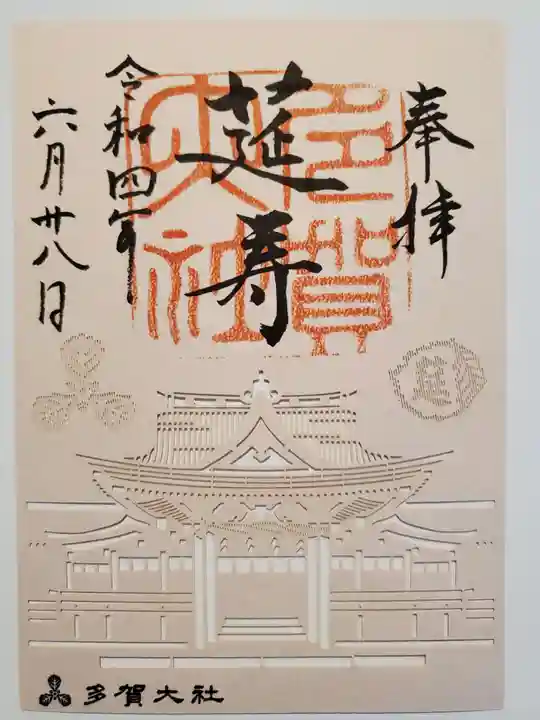 奉拝
莚寿
多賀大社
令和四年
六月廿八日
莚寿
多賀大社